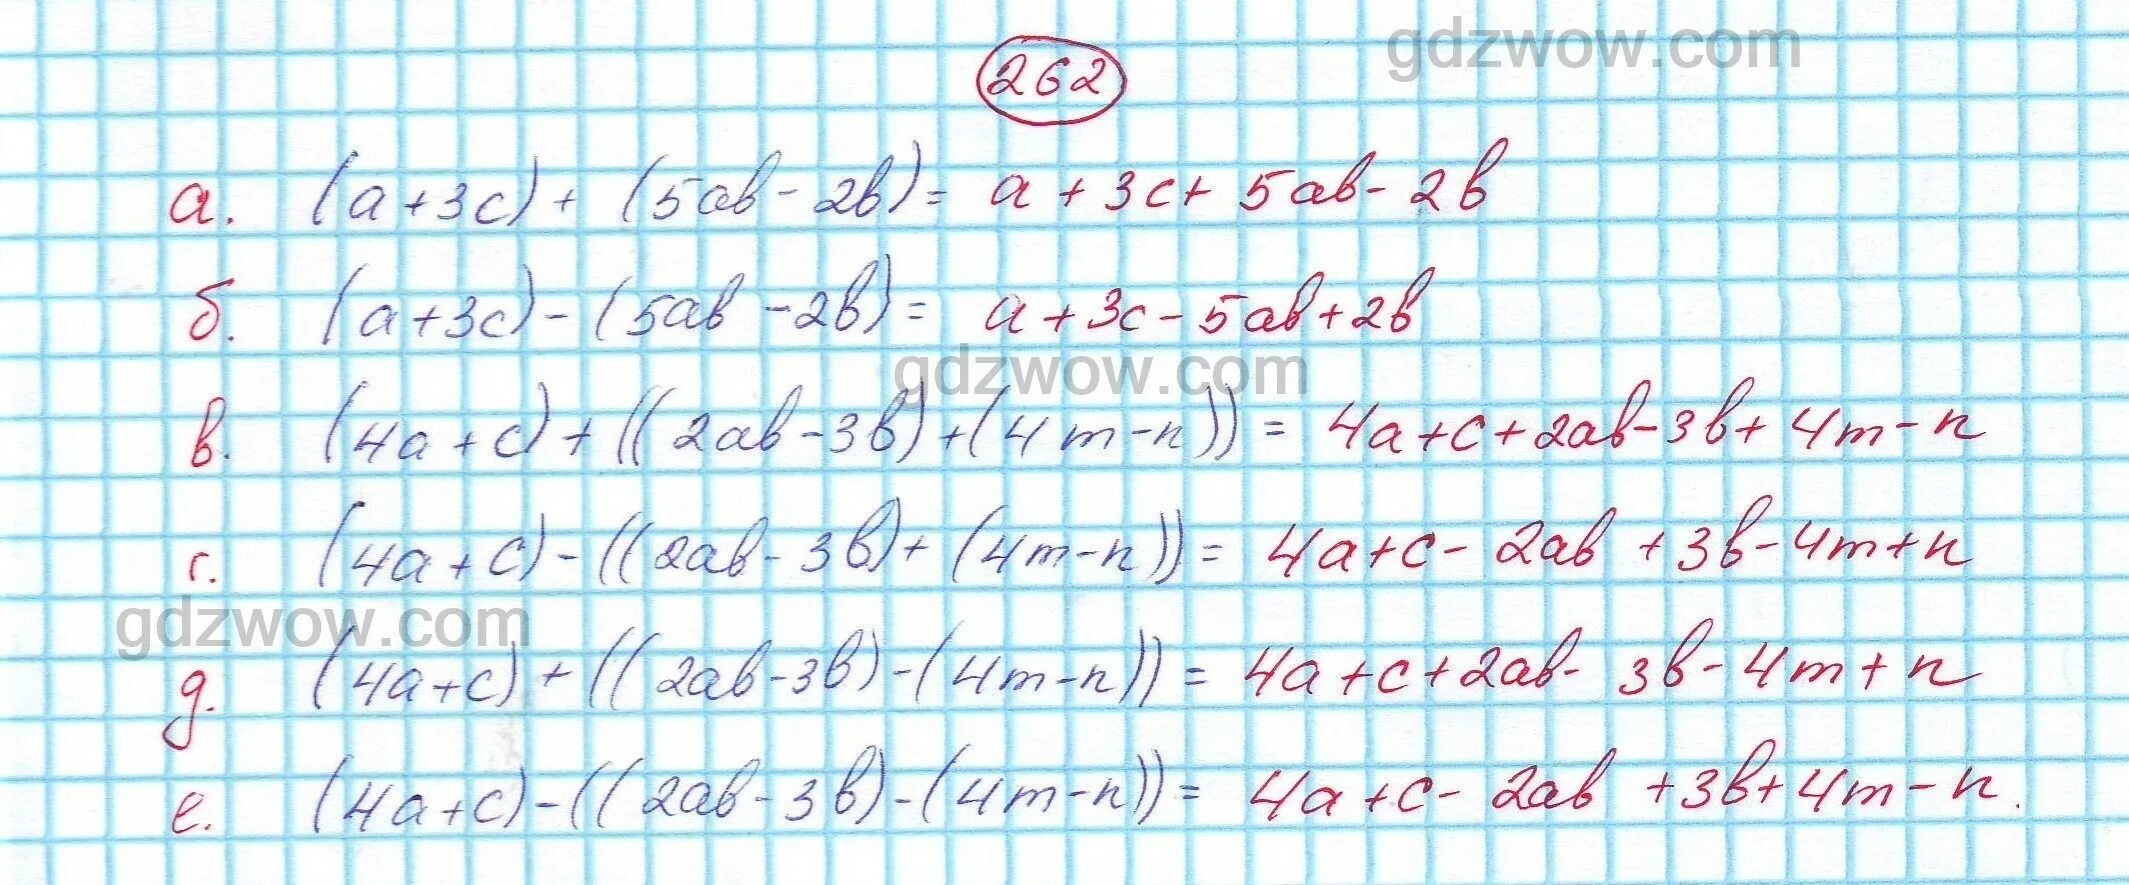 gdzwow.com
262
а. (a+3c)+(5ab-2b)= a+3c+5ab-2b
б. (a+3c)-(5ab-2b)= a+3c-5ab+2b
gdzwow.com
в. (4a+c)+((2ab-3b)+(4m-n))= 4a+c+2ab-3b+4m-n
г. (4a+c)-((2ab-3b)+(4m-n))= 4a+c-2ab+3b-4m+n
gdzwow.com
д. (4a+c)+((2ab-3b)-(4m-n))= 4a+c+2ab-3b-4m+n
е. (4a+c)-((2ab-3b)-(4m-n))= 4a+c-2ab+3b+4m-n.